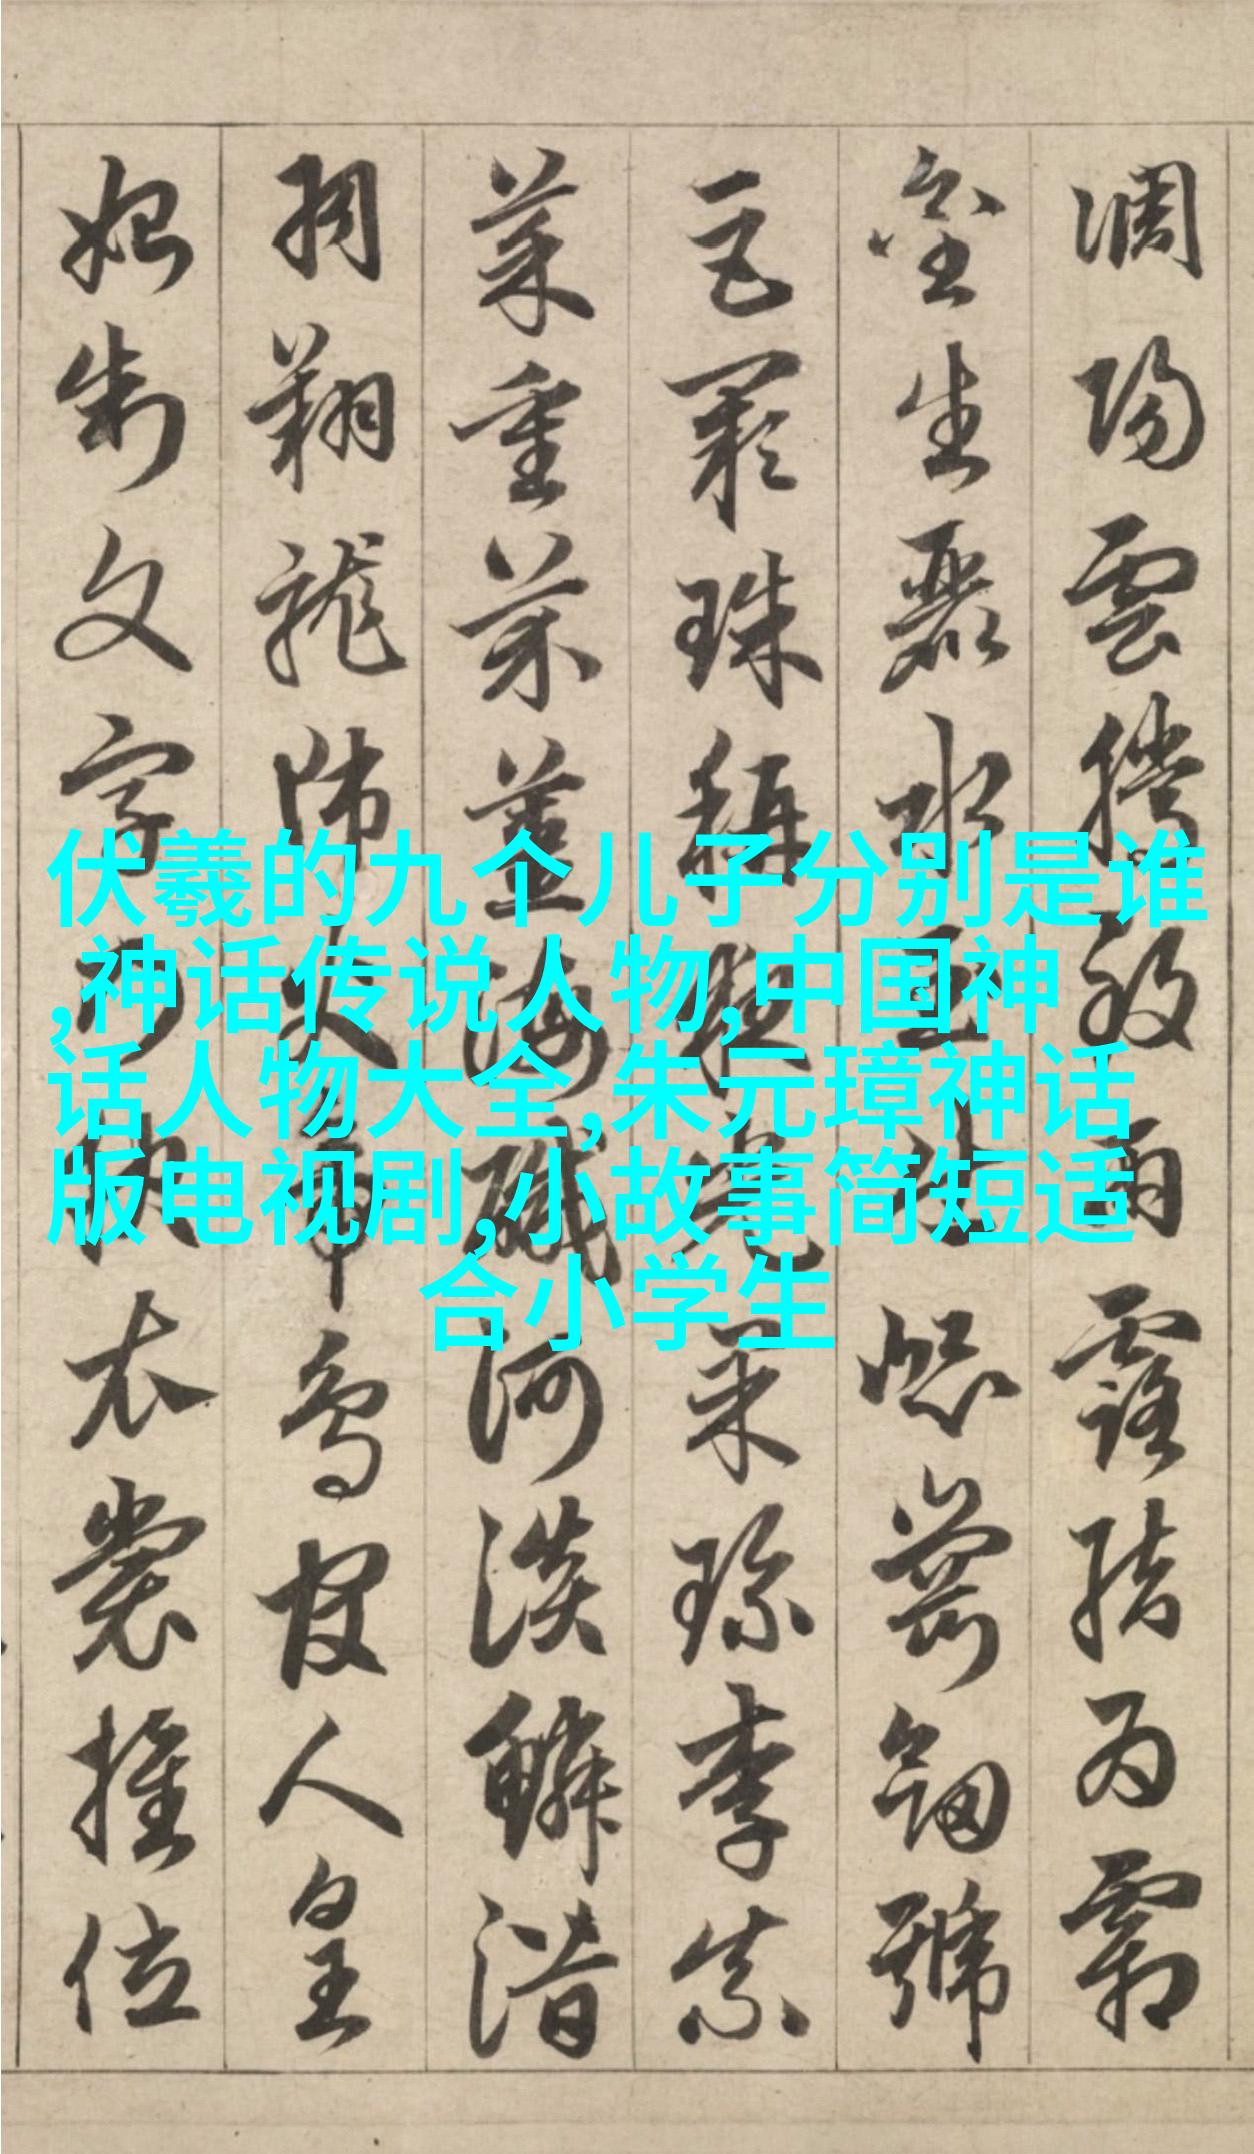 調陽雲騰致雨露結為霜
金生麗水玉出崑崗劒號
巨闕珠稱夜光果珍李柰
菜重芥薑海鹹河淡鱗潛
羽翔龍師火帝鳥官人皇
始制文字乃服衣裳推位
伏羲的九个儿子分别是谁
,神话传说人物,中国神
话人物大全,朱元璋神话
版电视剧,小故事简短适
合小学生